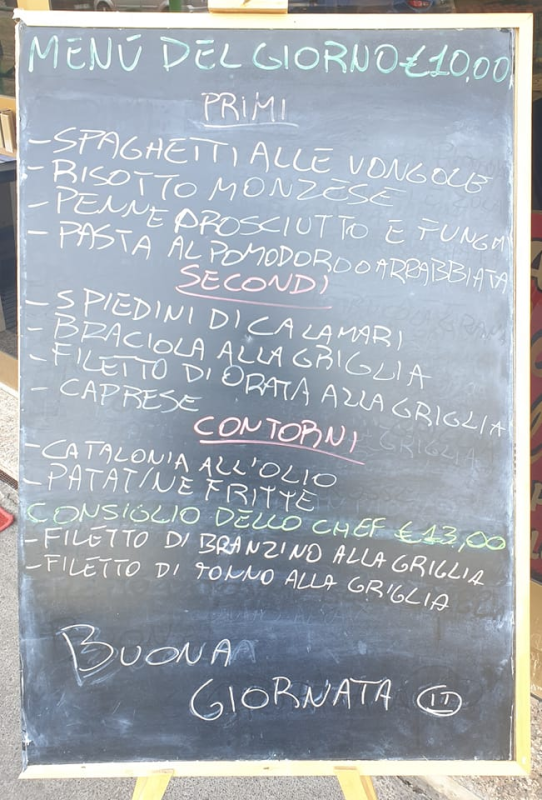 MENÚ DEL GIORNO €10,00
PRIMI
- SPAGHETTI ALLE VONGOLE
- RISOTTO MONZESE
- PENNE PROSCIUTTO E FUNGHI
- PASTA AL POMODORO O ARRABBIATA
SECONDI
- SPIEDINI DI CALAMARI
- BRACIOLA ALLA GRIGLIA
- FILETTO DI ORATA ALLA GRIGLIA
- CAPRESE
CONTORNI
- CATALONIA ALL'OLIO
- PATATINE FRITTE
CONSIGLIO DELLO CHEF €13,00
- FILETTO DI BRANZINO ALLA GRIGLIA
- FILETTO DI TONNO ALLA GRIGLIA
BUONA
GIORNATA